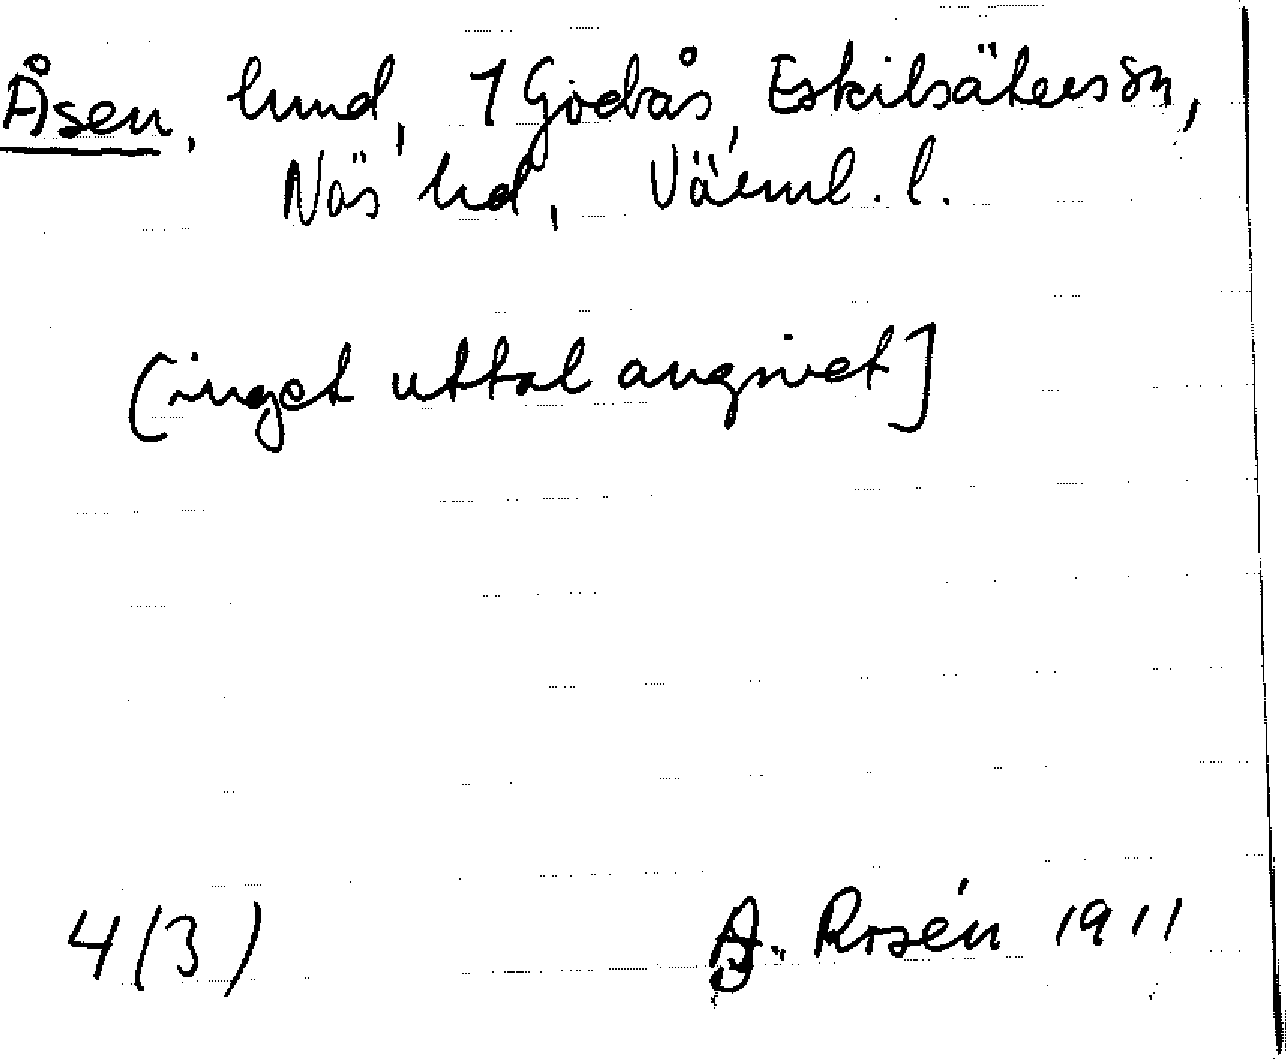 Åsen, lund, 1 Gjerdås, Eskilsäters sn,
Näs hd, Värml. l.
[inget uttal angivet]
4(3)
Rosén 1911